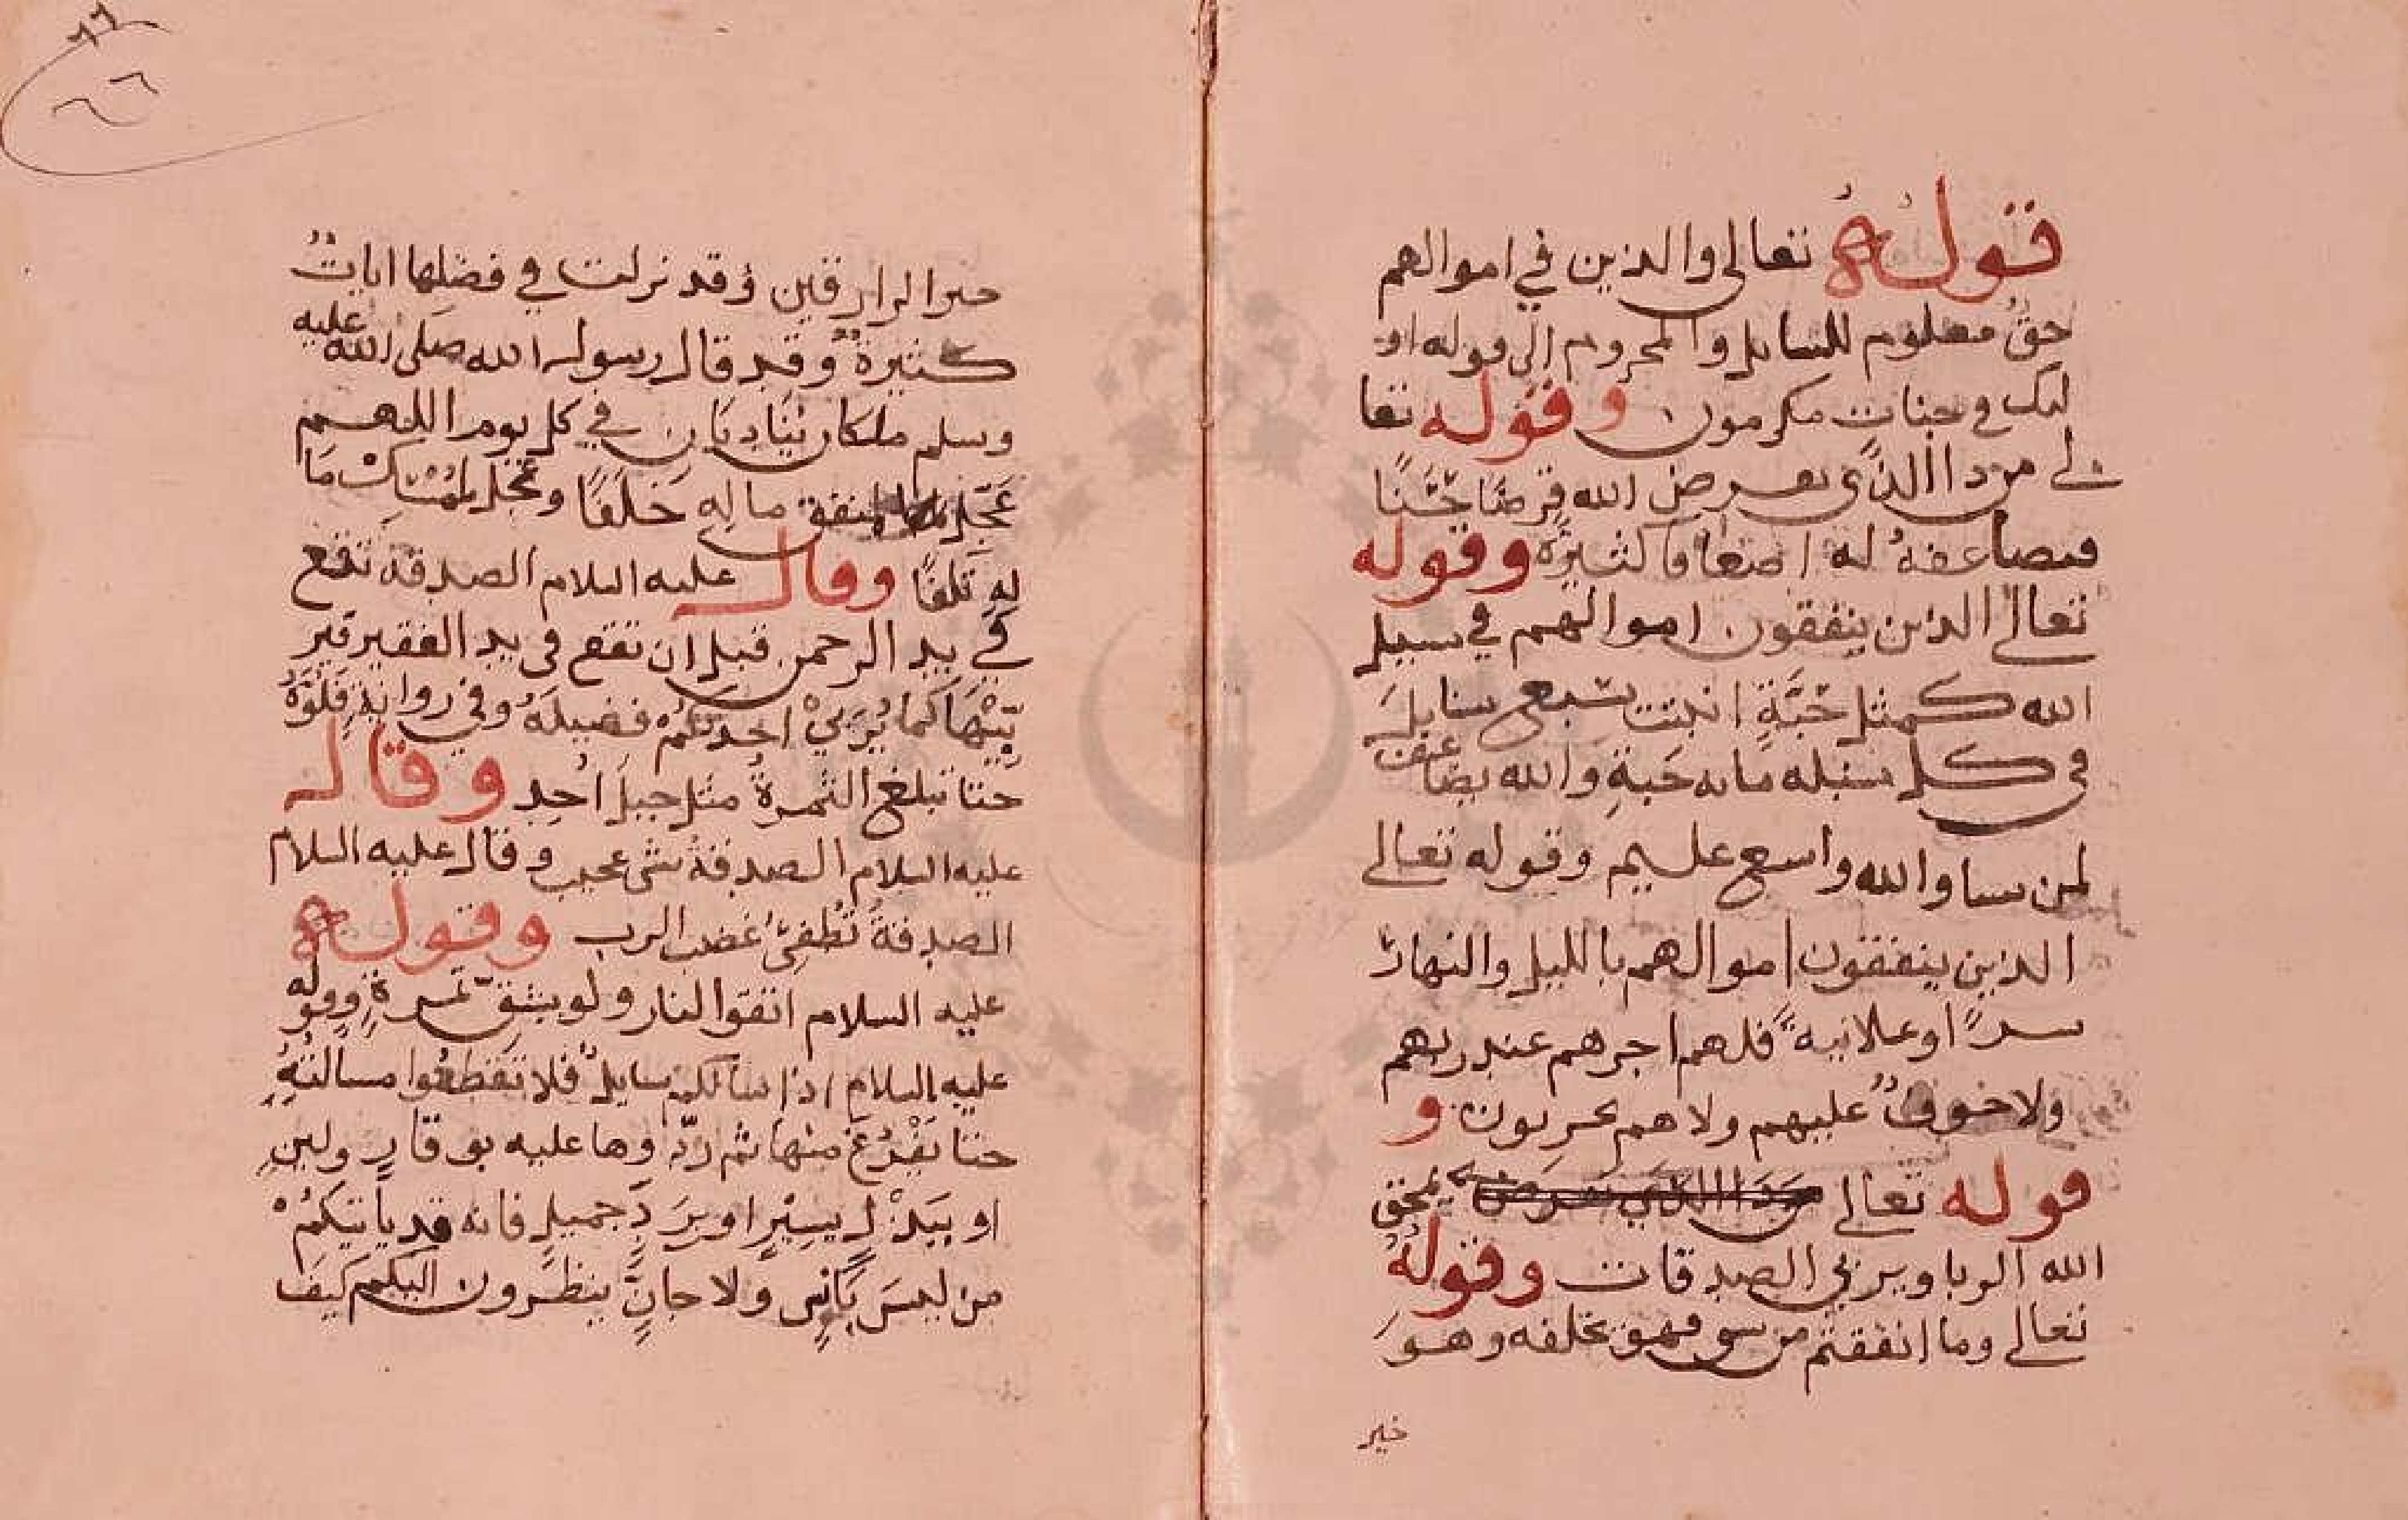 قوله تعالى والذين في اموالهم
حق معلوم للسايل والمحروم الى قوله او
ليك في جنات مكرمون وقوله تعا
لى من ذا الذي يقرض الله قرضا حسنا
فيضاعفه له اضعافا كثيرة وقوله
تعالى الذين ينفقون اموالهم في سبيل
الله كمثل حبة انبتت سبع سنابل
في كل سنبله مايه حبة والله يضاعف
لمن يسا والله واسع عليم وقوله تعالى
الذين ينفقون اموالهم بالليل والنهار
سرا وعلانية فلهم اجرهم عند ربهم
ولا خوف عليهم ولا هم يحزنون و
قوله تعالى يمحق
الله الربا ويربي الصدقات وقوله
تعالى وما انفقتم من سي فهو يخلفه وهو
خير
خير الرازقين وقد نزلت في فضلها ايات
كثيرة وقد قال رسول الله صلى الله عليه
وسلم ملكان يناديان في كل يوم اللهم
عجل لمنفق ماله خلفا وعجل لممسك ما
له تلفا وقال عليه السلام الصدقة تقع
في يد الرحمن قبل ان تقع في يد الفقير فير
بيها كما يربي احدكم فصيله وفي رواية فلوة
حتا تبلغ الثمرة مثل جبل احد وقال
عليه السلام الصدقة شي عجيب وقال عليه السلام
الصدقة تطفئ غضب الرب وقوله
عليه السلام اتقوا النار ولو بشق تمرة وقوله
عليه السلام اذا سالكم سايل فلا تقطعوا مسالته
حتا يفرغ منها ثم ردوها عليه بوقار ولين
او ببذل يسير او برد جميل فانه قد ياتيكم
من ليس بانس ولا جان ينظرون اليكم كيف
٦٦